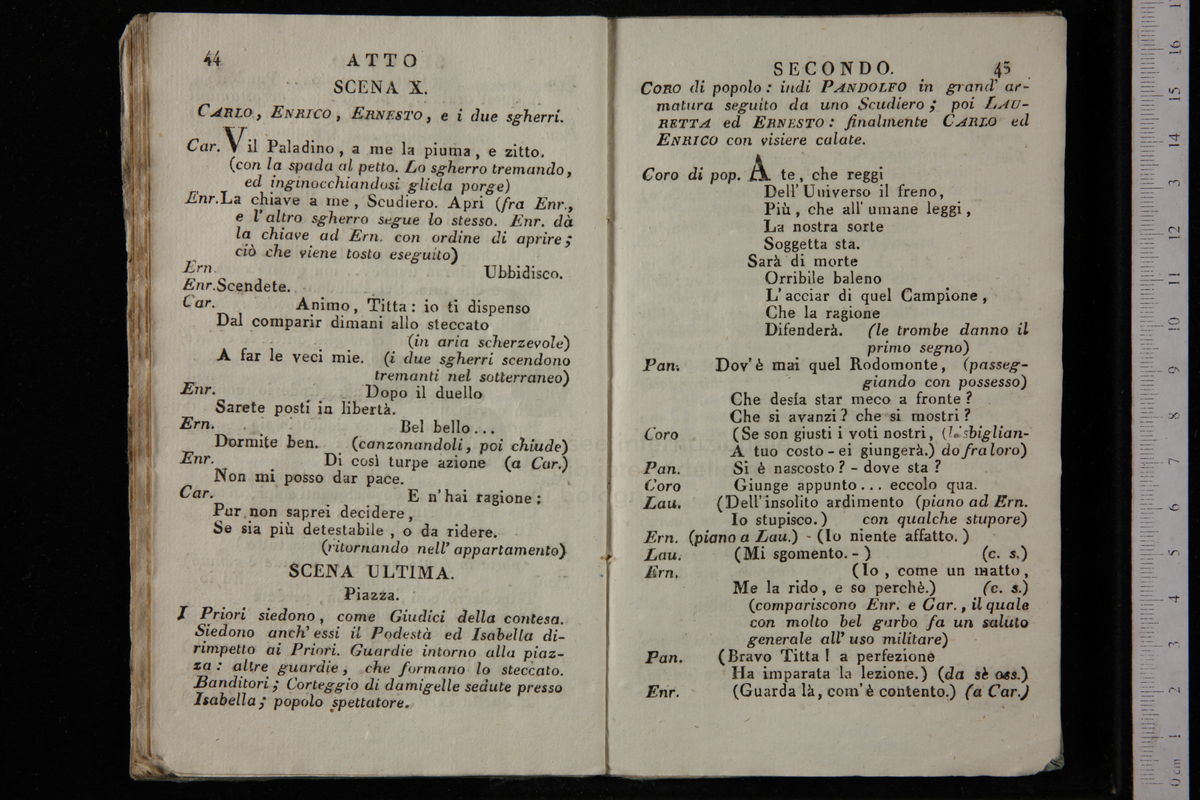 44
ATTO
SCENA X.
CARLO, ENRICO, ERNESTO, e i due sgherri.
Car. Vil Paladino, a me la piuma, e zitto.
(con la spada al petto. Lo sgherro tremando,
ed inginocchiandosi gliela porge)
Enr. La chiave a me, Scudiero. Apri (fra Enr.,
e l'altro sgherro segue lo stesso. Enr. dà
la chiave ad Ern. con ordine di aprire;
ciò che viene tosto eseguito)
Ern. Ubbidisco.
Enr. Scendete.
Car. Animo, Titta: io ti dispenso
Dal comparir dimani allo steccato
(in aria scherzevole)
A far le veci mie. (i due sgherri scendono
tremanti nel sotterraneo)
Enr. Dopo il duello
Sarete posti in libertà.
Ern. Bel bello...
Dormite ben. (canzonandoli, poi chiude)
Enr. Di così turpe azione (a Car.)
Non mi posso dar pace.
Car. E n'hai ragione:
Pur non saprei decidere,
Se sia più detestabile, o da ridere.
(ritornando nell' appartamento)
SCENA ULTIMA.
Piazza.
I Priori siedono, come Giudici della contesa.
Siedono anch' essi il Podestà ed Isabella di-
rimpetto ai Priori. Guardie intorno alla piaz-
za: altre guardie, che formano lo steccato.
Banditori; Corteggio di damigelle sedute presso
Isabella; popolo spettatore.
SECONDO. 45
CORO di popolo: indi PANDOLFO in grand' ar-
matura seguito da uno Scudiero; poi LAU-
RETTA ed ERNESTO: finalmente CARLO ed
ENRICO con visiere calate.
Coro di pop. A te, che reggi
Dell' Universo il freno,
Più, che all' umane leggi,
La nostra sorte
Soggetta sta.
Sarà di morte
Orribile baleno
L' acciar di quel Campione,
Che la ragione
Difenderà. (le trombe danno il
primo segno)
Pan. Dov' è mai quel Rodomonte, (passeg-
giando con possesso)
Che desía star meco a fronte?
Che si avanzi? che si mostri?
Coro (Se son giusti i voti nostri, (bisbiglian-
A tuo costo - ei giungerà.) do fra loro)
Pan. Si è nascosto? - dove sta?
Coro Giunge appunto... eccolo qua.
Lau. (Dell' insolito ardimento (piano ad Ern.
Io stupisco.) con qualche stupore)
Ern. (piano a Lau.) - (Io niente affatto.)
Lau. (Mi sgomento. - ) (c. s.)
Ern. (Io, come un matto,
Me la rido, e so perchè.) (c. s.)
(compariscono Enr. e Car., il quale
con molto bel garbo fa un saluto
generale all' uso militare)
Pan. (Bravo Titta! a perfezione
Ha imparata la lezione.) (da sè oss.)
Enr. (Guarda là, com' è contento.) (a Car.)